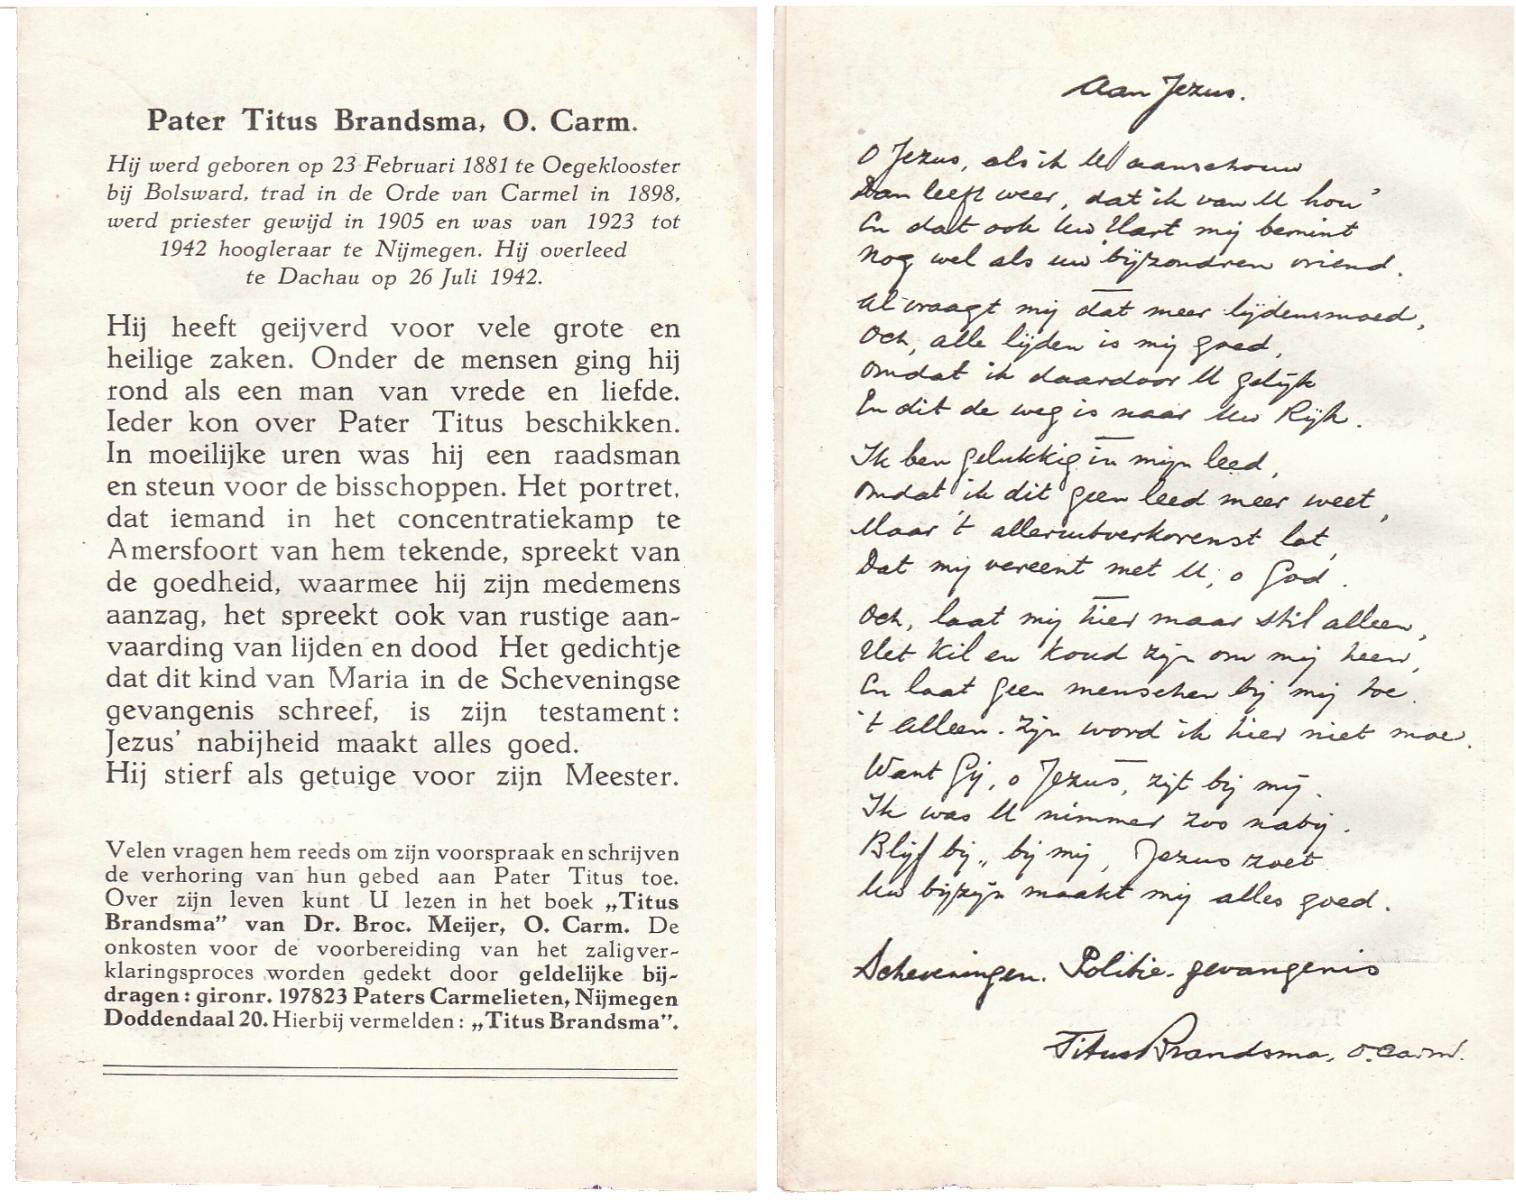 Pater Titus Brandsma, O. Carm.
Hij werd geboren op 23 Februari 1881 te Oegeklooster
bij Bolsward, trad in de Orde van Carmel in 1898,
werd priester gewijd in 1905 en was van 1923 tot
1942 hoogleraar te Nijmegen. Hij overleed
te Dachau op 26 Juli 1942.
Hij heeft geijverd voor vele grote en
heilige zaken. Onder de mensen ging hij
rond als een man van vrede en liefde.
Ieder kon over Pater Titus beschikken.
In moeilijke uren was hij een raadsman
en steun voor de bisschoppen. Het portret,
dat iemand in het concentratiekamp te
Amersfoort van hem tekende, spreekt van
de goedheid, waarmee hij zijn medemens
aanzag, het spreekt ook van rustige aan-
vaarding van lijden en dood Het gedichtje
dat dit kind van Maria in de Scheveningse
gevangenis schreef, is zijn testament:
Jezus' nabijheid maakt alles goed.
Hij stierf als getuige voor zijn Meester.
Velen vragen hem reeds om zijn voorspraak en schrijven
de verhoring van hun gebed aan Pater Titus toe.
Over zijn leven kunt U lezen in het boek „Titus
Brandsma” van Dr. Broc. Meijer, O. Carm. De
onkosten voor de voorbereiding van het zaligver-
klaringsproces worden gedekt door geldelijke bij-
dragen: gironr. 197823 Paters Carmelieten, Nijmegen
Doddendaal 20. Hierbij vermelden: „Titus Brandsma”.
Aan Jezus.
O Jezus, als ik U aanschouw
Dan leeft weer, dat ik van U hou'
En dat ook Uw Hart mij bemint
Nog wel als uw bijzondren vriend.
Al vraagt mij dat meer lijdensmoed,
Och, alle lijden is mij goed,
Omdat ik daardoor U gelijk
En dit de weg is naar Uw Rijk.
Ik ben gelukkig in mijn leed,
Omdat ik dit geen leed meer weet,
Maar 't alleruitverkorenst lot,
Dat mij vereent met U, o God.
Och, laat mij hier maar stil alleen,
Het kil en koud zijn om mij heen,
En laat geen menschen bij mij toe.
't Alleen-zijn word ik hier niet moe.
Want Gij, o Jezus, zijt bij mij.
Ik was U nimmer zoo nabij.
Blijf bij, bij mij, Jezus zoet
Uw bijzijn maakt mij alles goed.
Scheveningen. Politie-gevangenis
Titus Brandsma, O.Carm.